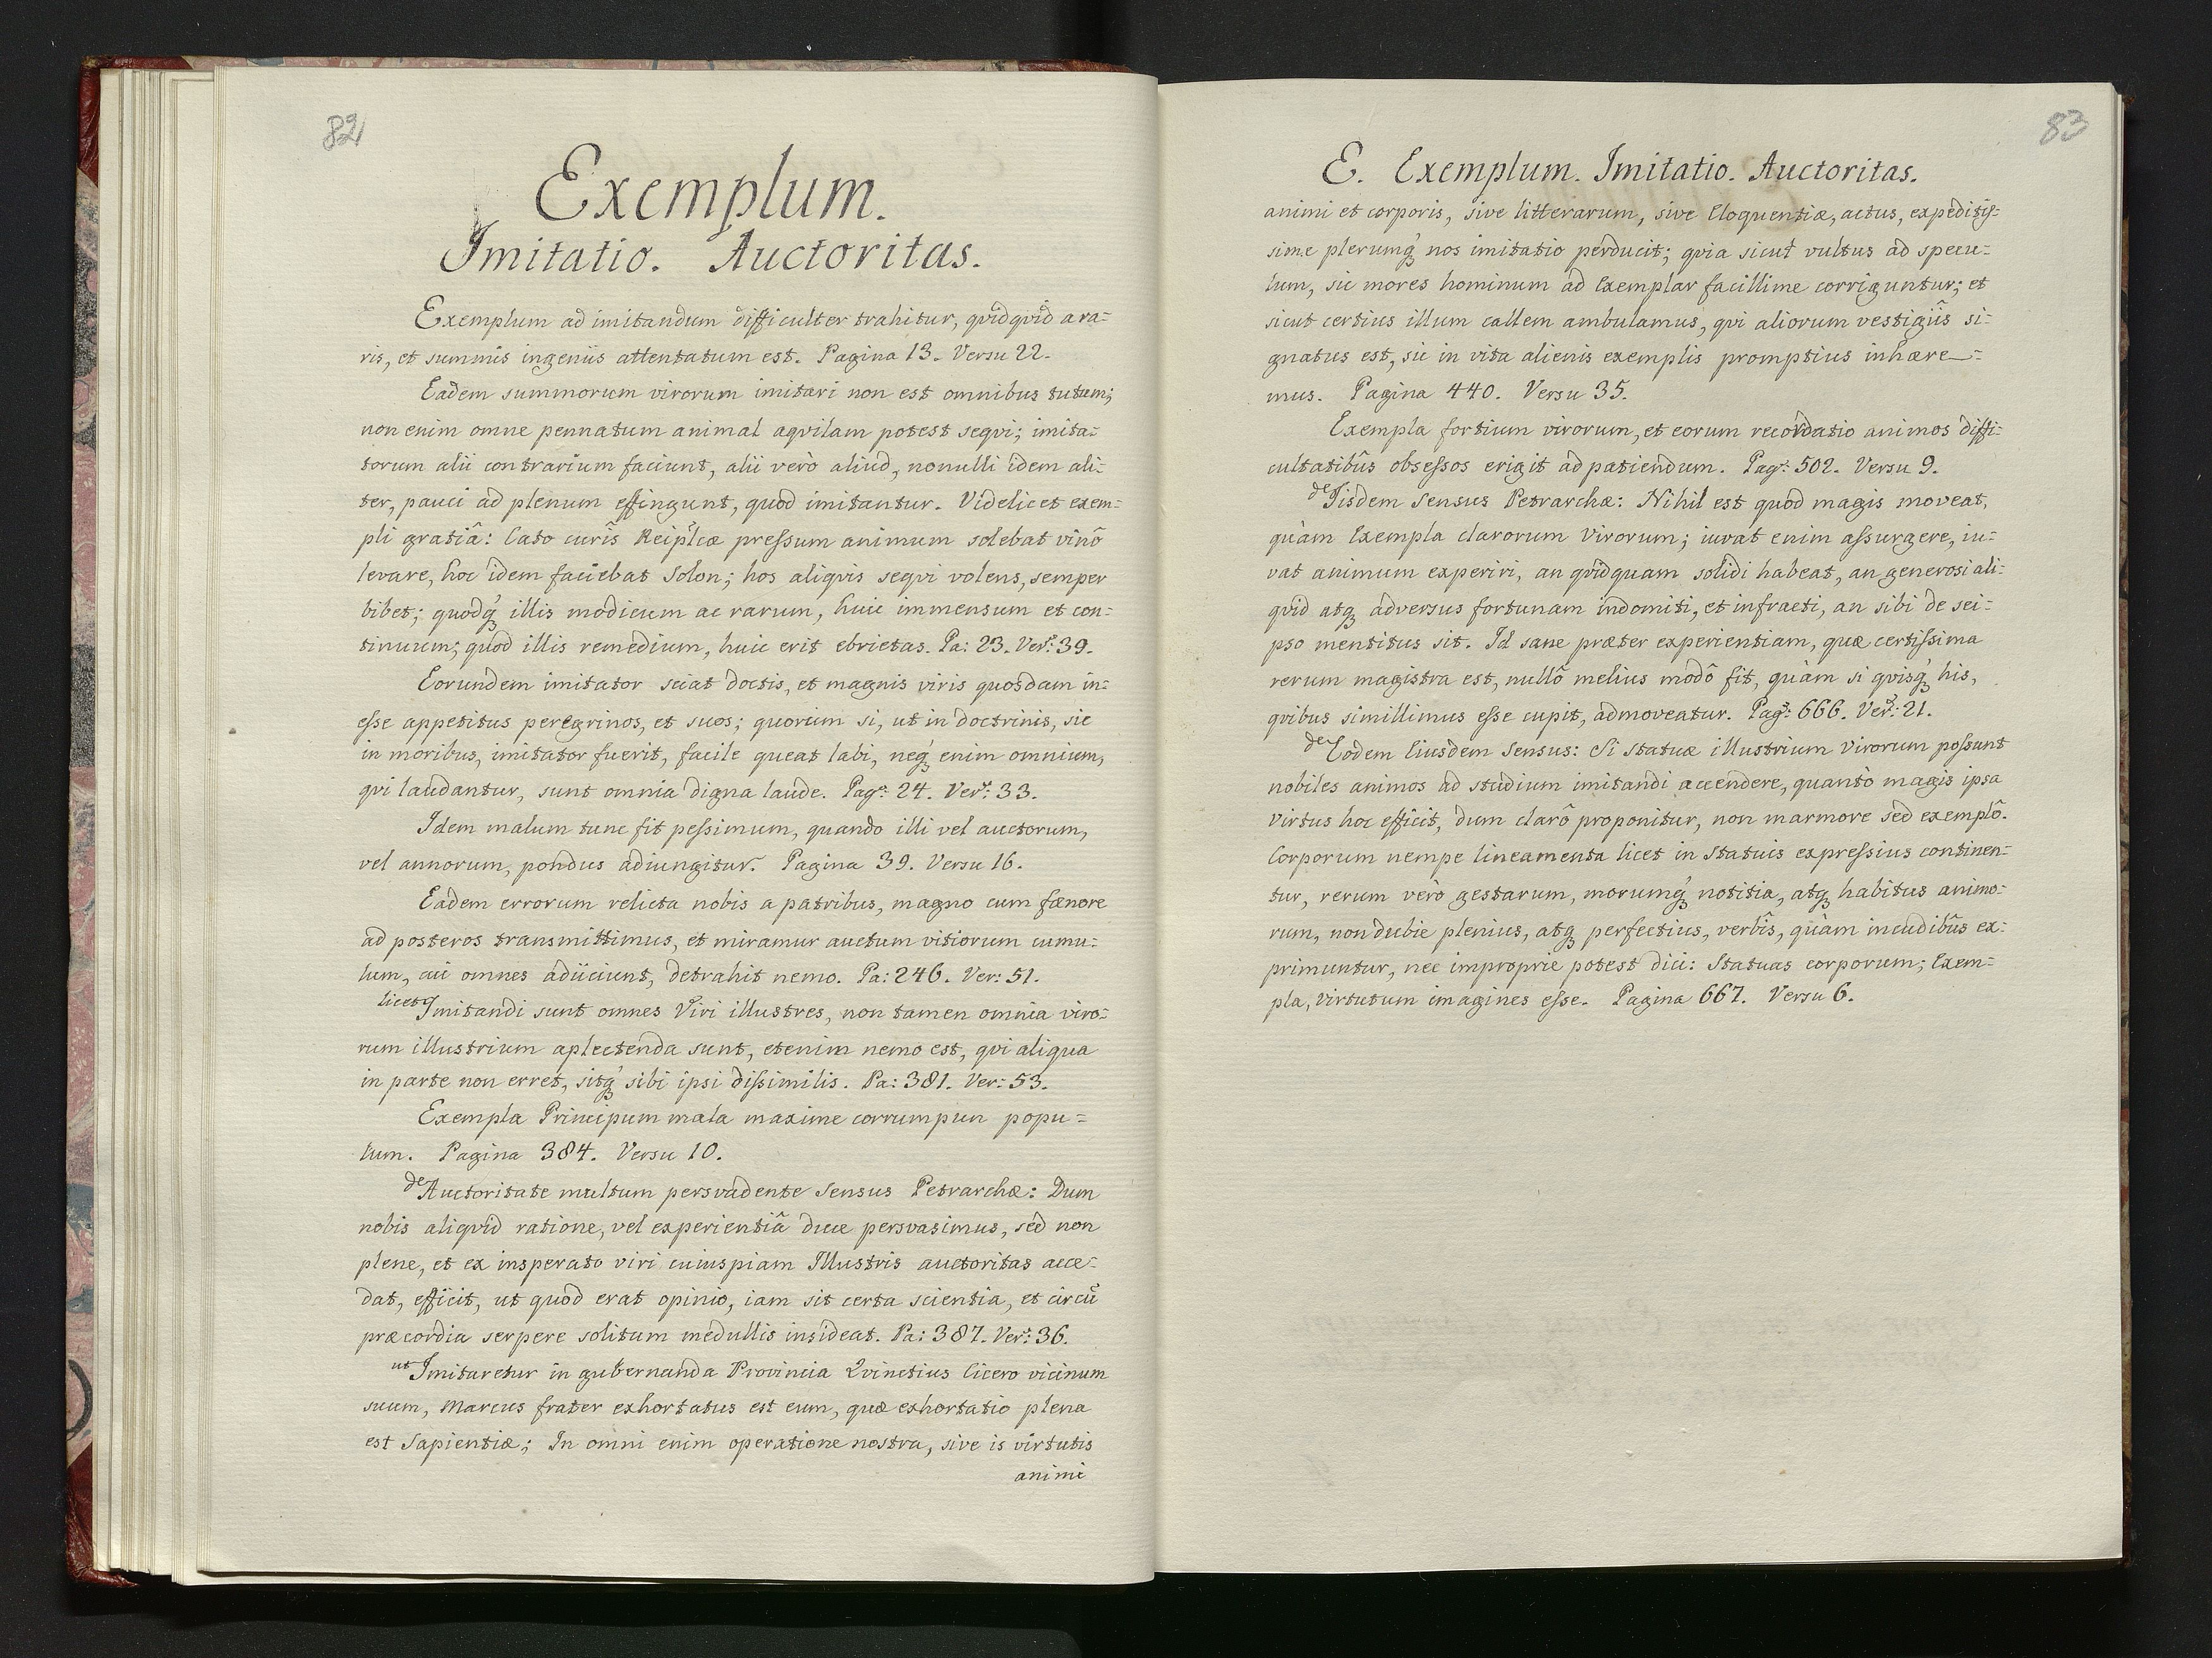 82
Exemplum.
Imitatio. Auctoritas.
Exemplum ad imitandum difficulter trahitur, qvidqvid a ra=
ris, et summis ingeniis attentatum est. Pagina 13. Versu 22.
Eadem summorum virorum imitari non est omnibus tutum;
non enim omne pennatum animal aqvilam potest seqvi; imita=
torum alii contrarium faciunt, alii verò aliud, nonulli idem ali=
ter, pauci ad plenum effingunt, quod imitantur. Videlicet exem=
pli gratiâ: Cato curîs Reiplcæ pressum animum solebat vinô
levare, hoc idem faciebat Solon; hos aliqvis seqvi volens, semper
bibet; quodq́ȝ illis modicum ac rarum, huic immensum et con=
tinuum; quod illis remedium, huic erit ebrietas. Pa: 23. Ver: 39.
Eorundem imitator sciat doctis, et magnis viris quosdam in=
esse appetitus peregrinos, et suos; quorum si, ut in doctrinis, sic
in moribus, imitator fuerit, facile queat labi, neqȝ́ enim omnium,
qvi laudantur, sunt omnia digna laude. Pag: 24. Ver: 33.
Idem malum tunc fit pessimum, quando illi vel auctorum,
vel annorum, pondus adiungitur. Pagina 39. Versu 16.
Eadem errorum relicta nobis a patribus, magno cum fænore
ad posteros transmittimus, et miramur auctum vitiorum cumu=
lum, cui omnes adiiciunt, detrahit nemo. Pa: 246. Ver: 51.
licet Imitandi sunt omnes Viri illustres, non tamen omnia viro=
rum illustrium aplectenda sunt, etenim nemo est, qvi aliqua
in parte non erret, sitqȝ́ sibi ipsi dissimilis. Pa: 381. Ver: 53.
Exempla Principum mala maxime corrumpun popu=
lum. Pagina 384. Versu 10.
de Auctoritate multum persvadente Sensus Petrarchæ: Dum
nobis aliqvid ratione, vel experientiâ duce persvasimus, sed non
plene, et ex insperato viri cuiuspiam Illustris auctoritas acce=
dat, efficit, ut quod erat opinio, iam sit certa scientia, et circũ
præcordia serpere solitum medullis insideat. Pa: 387. Ver: 36.
ut Imitaretur in gubernanda Provincia Qvinctius Cicero vicinum
suum, Marcus frater exhortatus est eum, quæ exhortatio plena
est Sapientiæ; In omni enim operatione nostra, sive is virtutis
animi
83
E. Exemplum. Imitatio. Auctoritas.
animi et corporis, sive litterarum, sive Eloquentiæ, actus, expeditis=
sime plerumqȝ́ nos imitatio perducit; qvia sicut vultus ad specu=
lum, sic mores hominum ad Exemplar facillime corriguntur; et
sicut certius illum callem ambulamus, qvi aliorum vestigiîs si=
gnatus est, sic in vita alienis exemplis promptius inhære=
mus. Pagina 440. Versu 35.
Exempla fortium virorum, et eorum recordatio animos diffi=
cultatibûs obsessos erigit ad patiendum. Pag: 502. Versu 9.
de Iisdem Sensus Petrarchæ: Nihil est quod magis moveat,
quàm Exempla clarorum Virorum; iuvat enim assurgere, iu=
vat animum experiri, an qvidquam solidi habeat, an generosi ali=
qvid atqȝ adversus fortunam indomiti, et infracti, an sibi de sei=
pso mentitus sit. Id sane præter experientiam, quæ certissima
rerum magistra est, nullô melius modô fit, quàm si qvisqȝ́ his,
qvibus simillimus esse cupit, admoveatur. Pag: 666. Ver: 21.
de Eodem Eiusdem Sensus: Si Statuæ illustrium Virorum possunt
nobiles animos ad studium imitandi accendere, quantò magis ipsa
Virtus hoc efficit, dum clarô proponitur, non marmore sed exemplô.
Corporum nempe lineamenta licet in Statuis expressius continen=
tur, rerum verò gestarum, morumqȝ́ notitia, atqȝ habitus animo=
rum, non dubie plenius, atqȝ perfectius, verbîs, quàm incudibûs ex=
primuntur, nec improprie potest dici: Statuas corporum; Exem=
pla, virtutum imagines esse. Pagina 667. Versu 6.